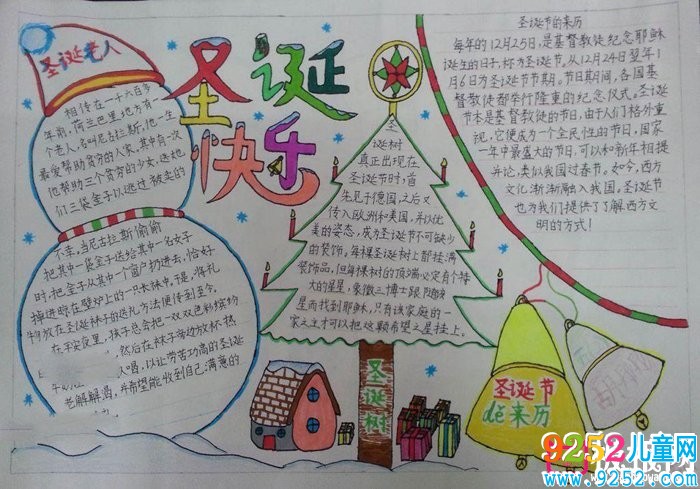 圣诞老人
相传在一千六百多
年前,荷兰巴里地方有一
个老人,名叫尼古拉斯,他一生
最爱帮助贫穷的人家,其中有一次
他帮助三个贫穷的少女,送她
们三袋金子以逃过被卖的
不幸,当尼古拉斯偷偷
把其中一袋金子送给其中一名女子
时,把金子从其中一个窗户扔进去,恰好
掉进晾在壁炉上的一只长袜中。于是,将礼
物放在圣诞袜子的送礼方法便传到至今。
在平安夜里,孩子总会把一双双色彩缤纷
然后在袜子旁边放杯热
喝,以让劳苦功高的圣诞
老解解渴,并希望能收到自己满意的
圣诞
快乐
圣
诞树
真正出现在
圣诞节时,首
先见于德国,之后又
传入欧洲和美国,并以优
美的姿态,成为圣诞节不可缺少
的装饰。每棵圣诞树上都挂满
装饰品,但每棵树的顶端必定有个特
大的星星,象徵三博士跟随该
星而找到耶稣,只有该家庭的一
家之主才可以把这颗希望之星挂上。
圣诞树
圣诞节的来历
每年的12月25日,是基督教徒纪念耶稣
诞生的日子,称为圣诞节。从12月24日翌年1
月6日为圣诞节节期。节日期间,各国基
督教徒都举行隆重的纪念仪式。圣诞
节本是基督教徒的节日,由于人们格外重
视,它便成为一个全民性的节日,国家
一年中最盛大的节日,可以和新年相提
并论,类似我国过春节。如今,西方
文化渐渐融入我国,圣诞节
也为我们提供了了解西方文
明的方式!
圣诞节
dè来历
9252儿童网
www.9252.com